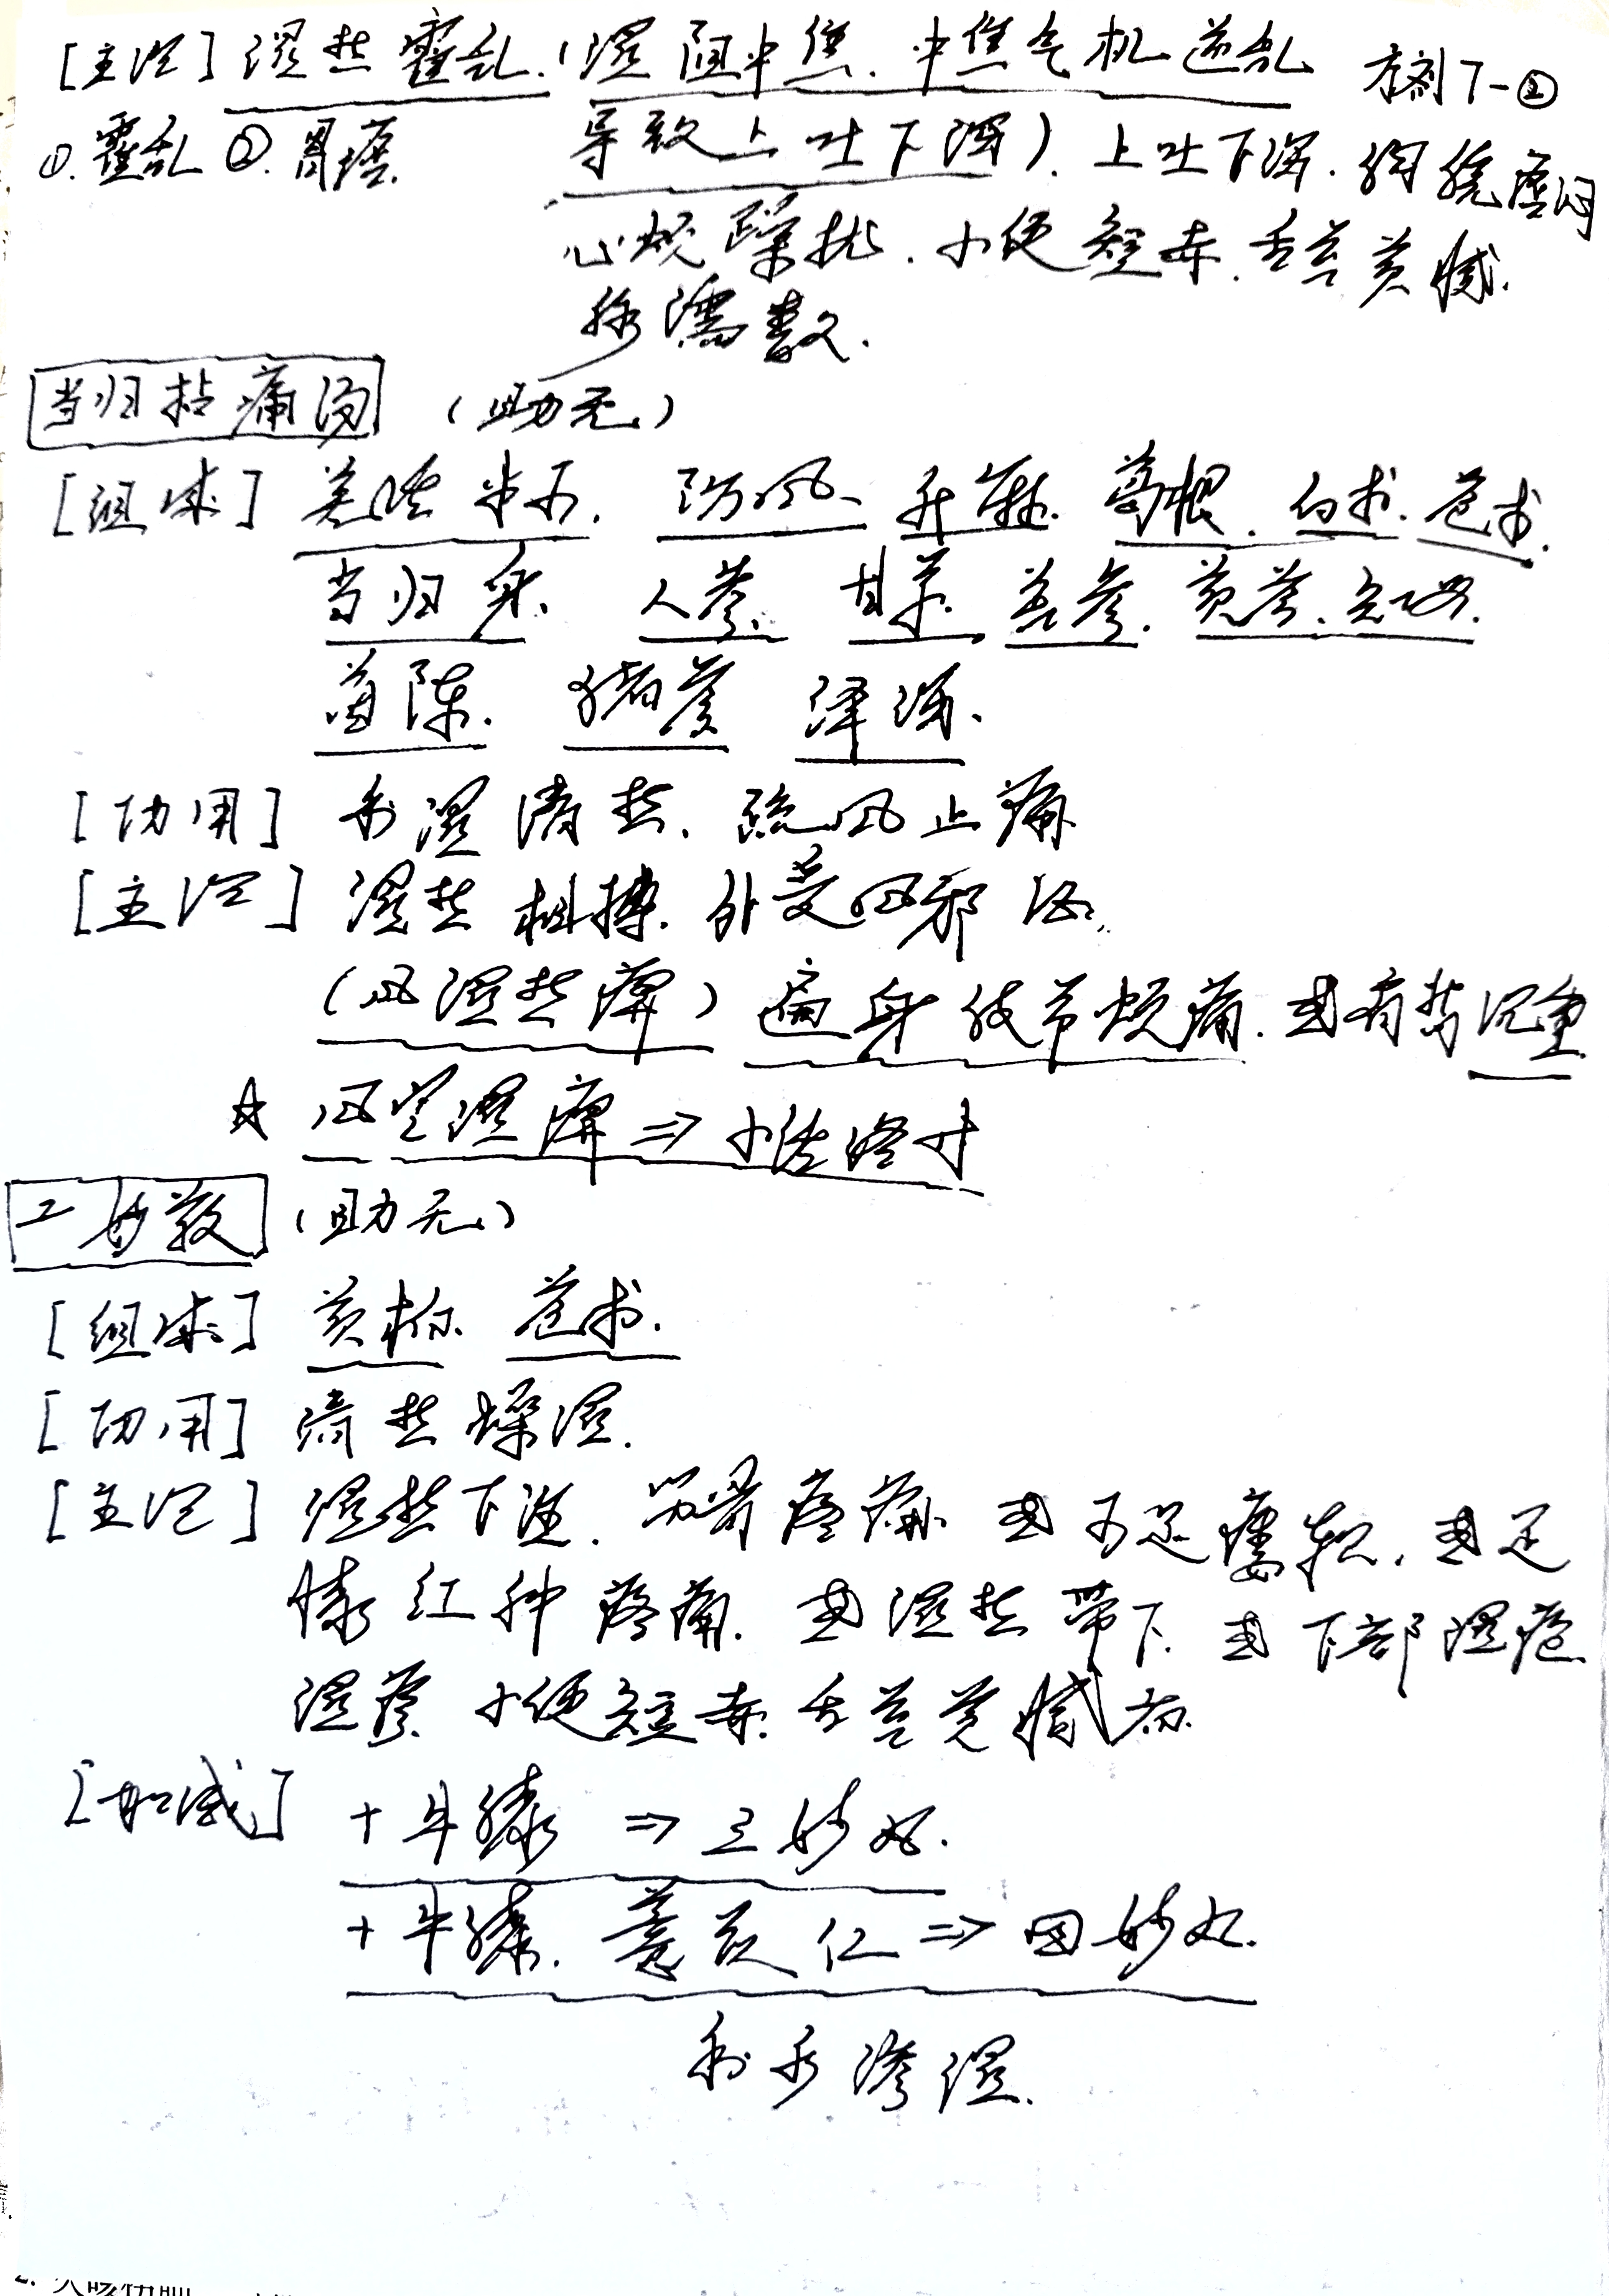 [主治] 湿热霍乱.(湿阻中焦.中焦气机逆乱 方剂7-②
①.霍乱 ②.胃痞. 导致上吐下泻).上吐下泻.胸脘痞闷
心烦躁扰.小便短赤.舌苔黄腻.
脉濡数.
当归拈痛汤 (助无)
[组成] 羌活半两.防风、升麻.葛根.白术.苍术.
当归身.人参.甘草.苦参.黄芩.知母.
茵陈.猪苓 泽泻.
[功用] 利湿清热.疏风止痛
[主治] 湿热相搏.外受风邪证.
(风湿热痹) 遍身肢节烦痛.或肩背沉重
☆ 风寒湿痹 ⇒ 小活络丹
二妙散 (助无)
[组成] 黄柏.苍术.
[功用] 清热燥湿.
[主治] 湿热下注.筋骨疼痛.或两足痿软.或足
膝红肿疼痛.或湿热带下.或下部湿疮
湿疹.小便短赤.舌苔黄腻
[加减] +牛膝 ⇒ 三妙丸.
+牛膝.薏苡仁 ⇒ 四妙丸.
利水渗湿.